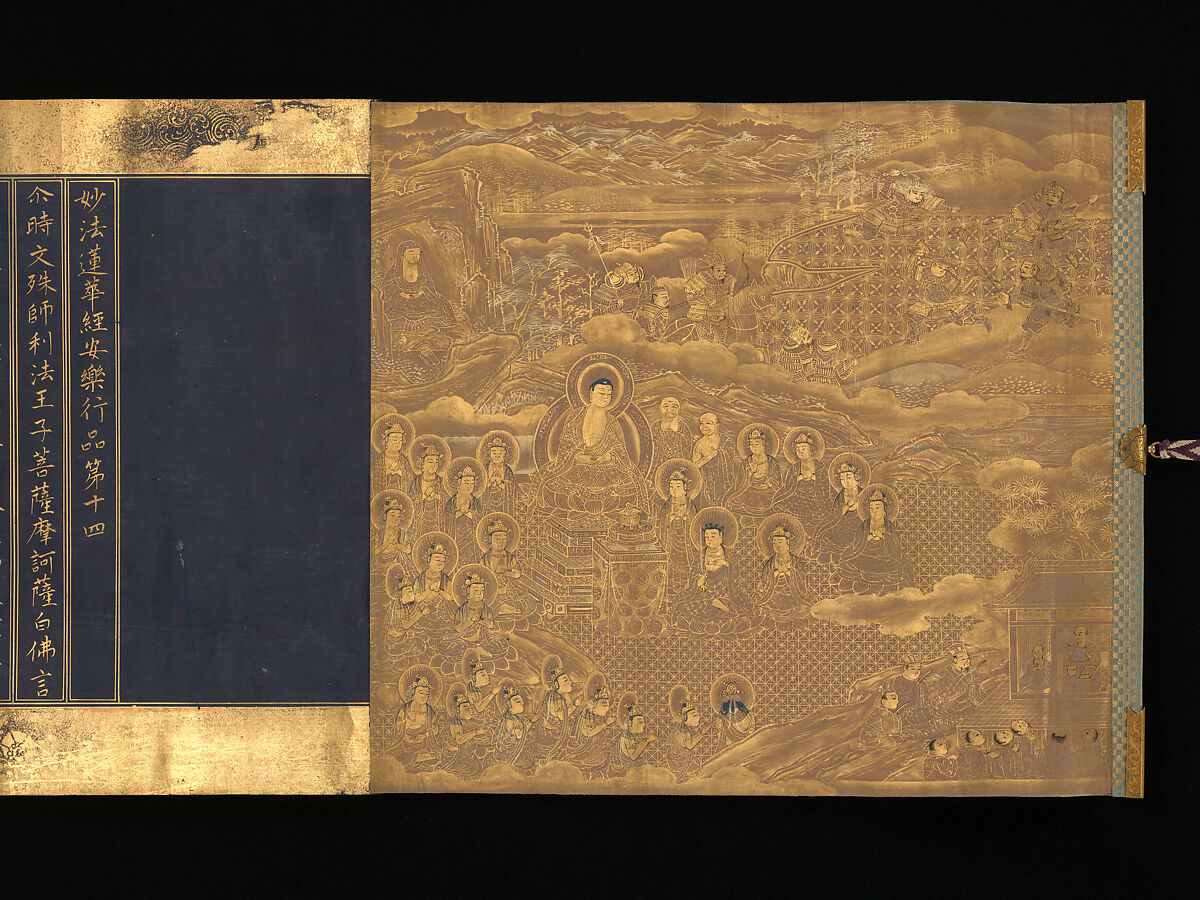 妙法蓮華經安樂行品第十四
尒時文殊師利法王子菩薩摩訶薩白佛言